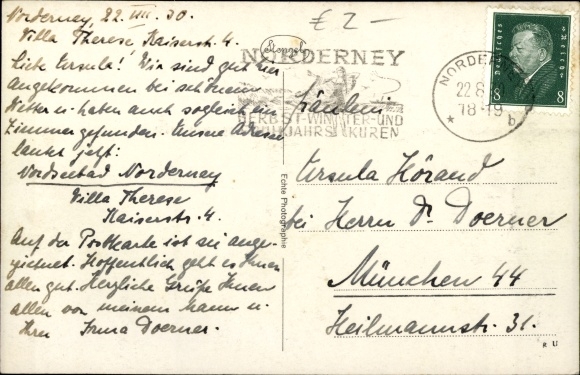 Norderney, 22. VIII. 30.
Villa Therese, Kaiserstr. 4.
Liebe Ursula! Wir sind gut hier
angekommen bei schönem
Wetter u. haben auch sogleich ein
Zimmer gefunden. Unsere Adresse
lautet jetzt:
Nordseebad Norderney
Villa Therese
Kaiserstr. 4.
Auf der Postkarte ist sie ange-
zeichnet. Hoffentlich geht es Ihnen
allen gut. Herzliche Grüße Ihnen
allen von meinem Mann u.
Ihrer Irma Doerner.
£ 2 —
Stengel
NORDERNEY
HERBST-WINTER-UND
FRÜHJAHRSKUREN
NORDERNEY
22.8.
18-19
* b
Deutsches Reich
8 8
Echte Photographie
Fräulein
Ursula Hörand
bei Herrn Dr. Doerner
München 44
Heilmannstr. 31.
R U